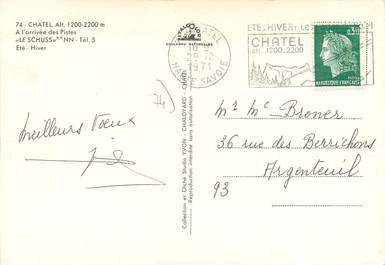 74 - CHATEL, Alt. 1200-2200 m
A l'arrivée des Pistes
«LE SCHUSS»**NN - Tél. 5
Eté - Hiver
74
Meilleurs Vœux
Collection et Cliché Studio YVON - CHALOYARD - CHATEL
Reproduction interdite sans autorisation
COULEURS NATURELLES
CHATEL
29-12
1971
HAUTE SAVOIE
ETE-HIVER
CHATEL
alt. 1200_2200
0,30
REPUBLIQUE FRANÇAISE
Mr Mc Broner
36 rue des Berrichons
Argenteuil
93